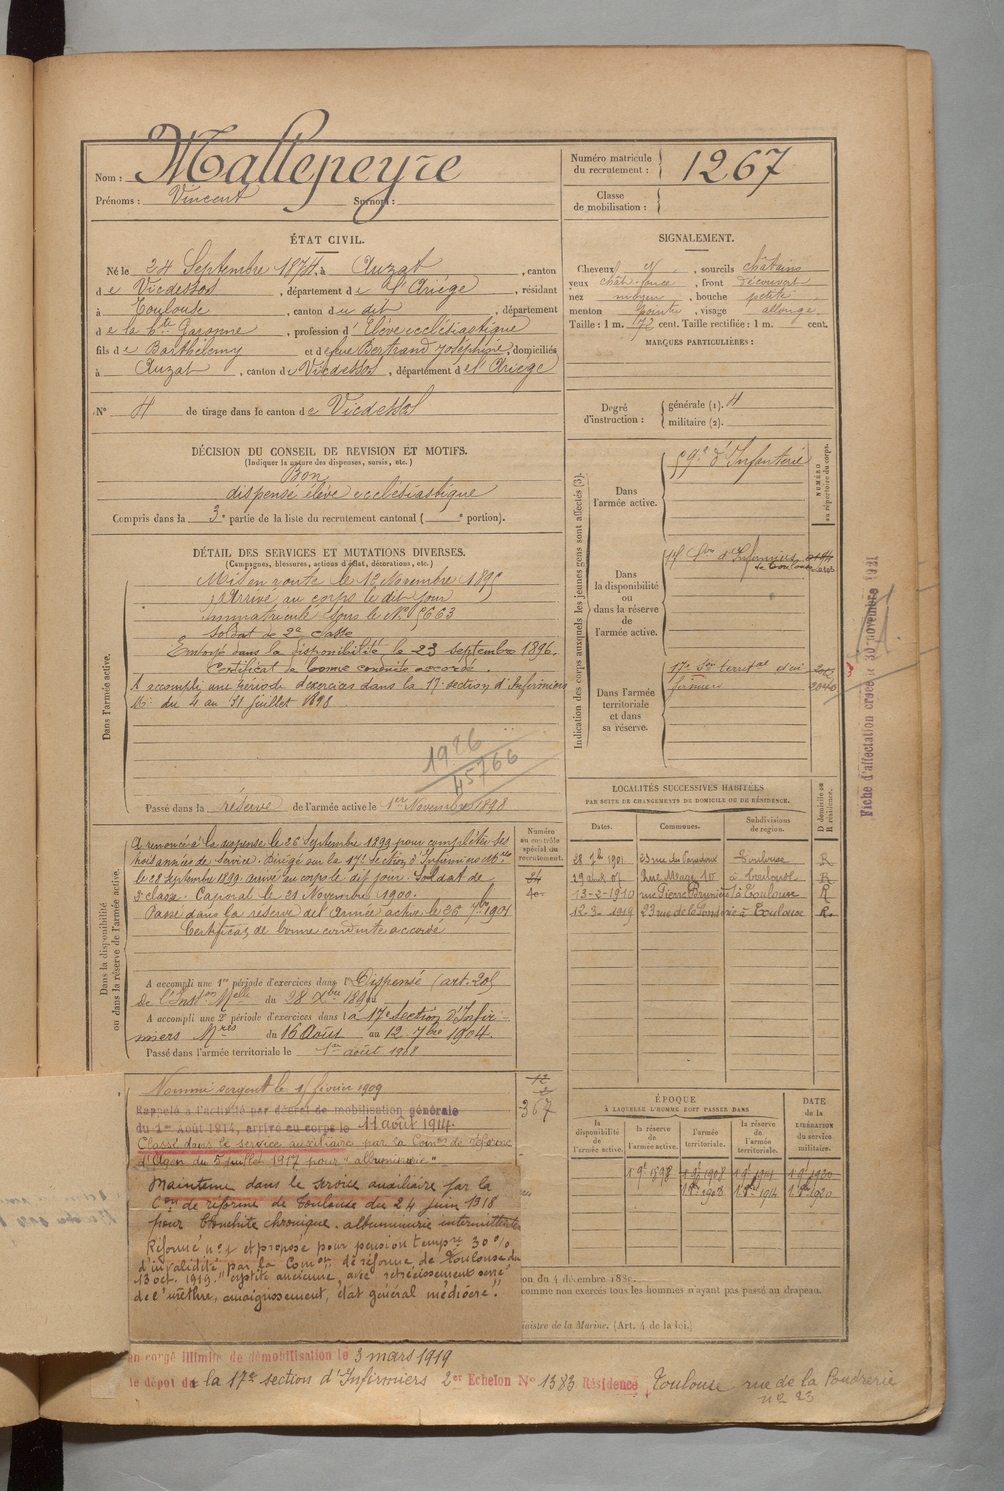 Nom : Mallepeyre
Prénoms : Vincent Surnom :
Numéro matricule du recrutement : 1267
Classe de mobilisation :
ÉTAT CIVIL.
Né le 24 Septembre 1874, à Auzat, canton
de Vicdessos, département de l'Ariége, résidant
à Toulouse, canton du dit, département
de la Hte Garonne, profession d'Élève ecclésiastique
fils de Barthélemy et de feue Bertrand Joséphine, domiciliés
à Auzat, canton de Vicdessos, département de l'Ariège
N° 4 de tirage dans le canton de Vicdessos
SIGNALEMENT.
Cheveux N, sourcils châtains
yeux chât. foncé, front découvert
nez moyen, bouche petite
menton pointu, visage allongé
Taille : 1 m. 72 cent. Taille rectifiée : 1 m. cent.
MARQUES PARTICULIÈRES :
Degré d'instruction : générale (1). 4
militaire (2).
DÉCISION DU CONSEIL DE REVISION ET MOTIFS.
(Indiquer la nature des dispenses, sursis, etc.)
Bon
dispensé élève ecclésiastique
Compris dans la 3e partie de la liste du recrutement cantonal ( e portion).
DÉTAIL DES SERVICES ET MUTATIONS DIVERSES.
(Campagnes, blessures, actions d'éclat, décorations, etc.)
Dans l'armée active.
Mis en route le 12 Novembre 1895
Arrivé au corps le dit jour
immatriculé sous le N° 5663
Soldat de 2e classe
Envoyé dans la disponibilité le 23 septembre 1896.
Certificat de bonne conduite accordé.
A accompli une période d'exercices dans la 17e section d'Infirmiers
Mres du 4 au 31 juillet 1898
1926
45766
Passé dans la réserve de l'armée active le 1er Novembre 1898
Indication des corps auxquels les jeunes gens sont affectés (3).
Dans l'armée active.
59e d'Infanterie
NUMÉRO au répertoire du corps.
Dans la disponibilité ou dans la réserve de l'armée active.
17e Son d'Infirmiers
de Toulouse
Dans l'armée territoriale et dans sa réserve.
17e Son territale d'in
firmiers
Fiche d'affectation créée le 30 novembre 1921
Dans la disponibilité ou dans la réserve de l'armée active.
A renoncé à la dispense le 26 Septembre 1899 pour compléter ses
trois années de service. Dirigé sur la 17e Section d'Infirmiers Mres
le 28 Septembre 1899. arrivé au corps le dit jour. Soldat de
2e classe. Caporal le 21 Novembre 1900.
Passé dans la réserve de l'Armée active le 26 7bre 1901
Certificat de bonne conduite accordé
Numéro au contrôle spécial du recrutement.
A accompli une 1re période d'exercices dans l Dispensé (art. 20)
de l'Inston Melle du 28 Xbre 1895
A accompli une 2e période d'exercices dans la 17e section d'Infir-
miers Mres du 16 Août au 12 7bre 1904.
Passé dans l'armée territoriale le 1er août 1908
LOCALITÉS SUCCESSIVES HABITÉES
PAR SUITE DE CHANGEMENTS DE DOMICILE OU DE RÉSIDENCE.
Dates. Communes. Subdivisions de région. D domicile ou R résidence.
28 7b 1901 Toulouse R
à Toulouse R
13-2-1910 à Toulouse R
12-3-1919 23 rue de la à Toulouse R.
Nommé sergent le février 1909
Rappelé à l'activité par décret de mobilisation générale
du 1er Août 1914, arrivé au corps le 11 août 1914.
Classé dans le service auxiliaire par la Comon de réforme
d'Agen du 5 juillet 1917 pour "albuminurie"
367
Maintenu dans le service auxiliaire par la
Con de réforme de Toulouse du 24 juin 1918
pour bronchite chronique. albuminurie intermittente
Réformé n° 1 et proposé pour pension tempre 30 %
d'invalidité par la Comon de réforme de Toulouse du
13 oct. 1919. "cystite ancienne, avec retrécissement serré
de l'urèthre, amaigrissement, état général médiocre".
ÉPOQUE
À LAQUELLE L'HOMME DOIT PASSER DANS
la disponibilité de l'armée active. la réserve de l'armée active. l'armée territoriale. la réserve de l'armée territoriale.
DATE de la LIBÉRATION du service militaire.
on du 4 décembre 188
comme non exercés tous les hommes n'ayant pas passé au drapeau.
inistre de la Marine. (Art. 4 de la loi.)
en congé illimité de démobilisation le 3 mars 1919
le dépôt de la 17e section d'Infirmiers 2er Echelon N° 1383 Résidence Toulouse rue de la Poudrerie
n° 23